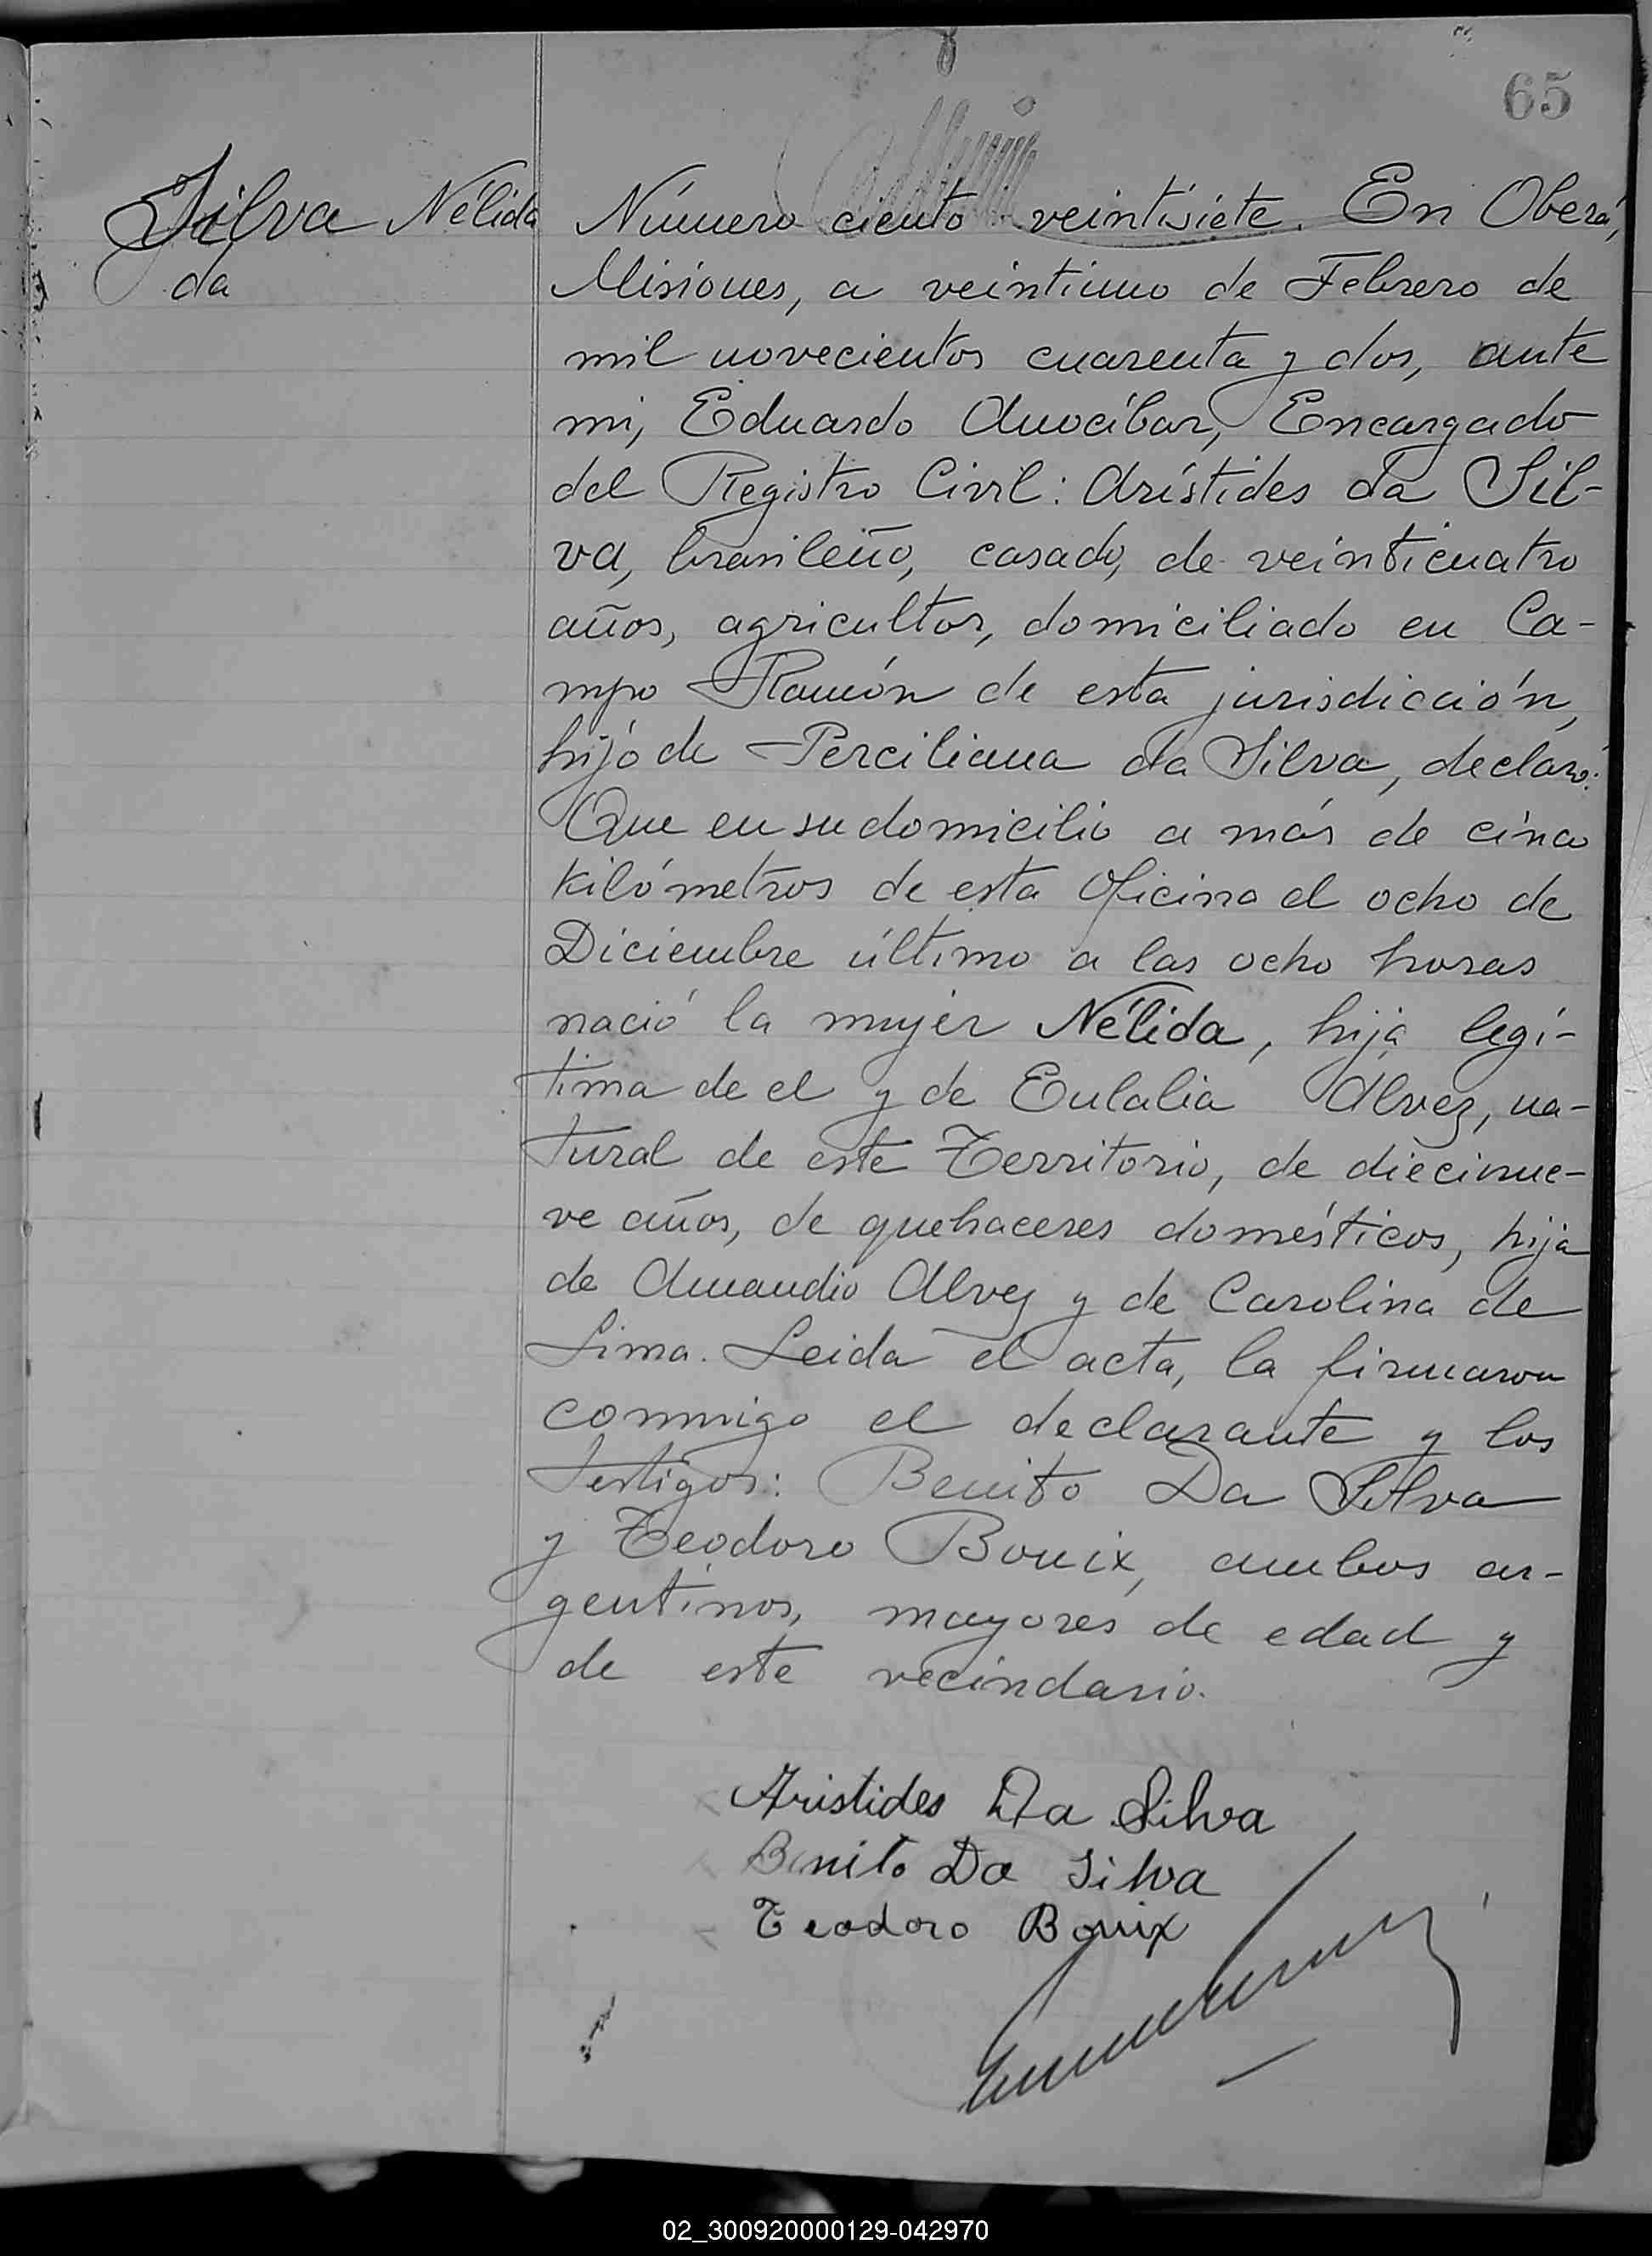 65
Silva Nélida
da
Número ciento veintisiete. En Oberá,
Misiones, a veintiuno de Febrero de
mil novecientos cuarenta y dos, ante
mi, Eduardo Anocíbar, Encargado
del Registro Civil: Arístides da Sil-
va, brasileño, casado, de veinticuatro
años, agricultor, domiciliado en Ca-
mpo Ramón de esta jurisdicción,
hijo de Perciliana da Silva, declaró:
Que en su domicilio a más de cinco
kilómetros de esta Oficina el ocho de
Diciembre último a las ocho horas
nació la mujer Nélida, hija legí-
tima de el y de Eulalia Alvez, na-
tural de este Territorio, de diecinue-
ve años, de quehaceres domésticos, hija
de Amandio Alvez y de Carolina de
Lima. Leida el acta, la firmaron
conmigo el declarante y los
testigos: Benito Da Silva
y Teodoro Bonix, ambos ar-
gentinos, mayores de edad y
de este vecindario.
Aristides Da Silva
Benito Da Silva
Teodoro Bonix
02_300920000129-042970